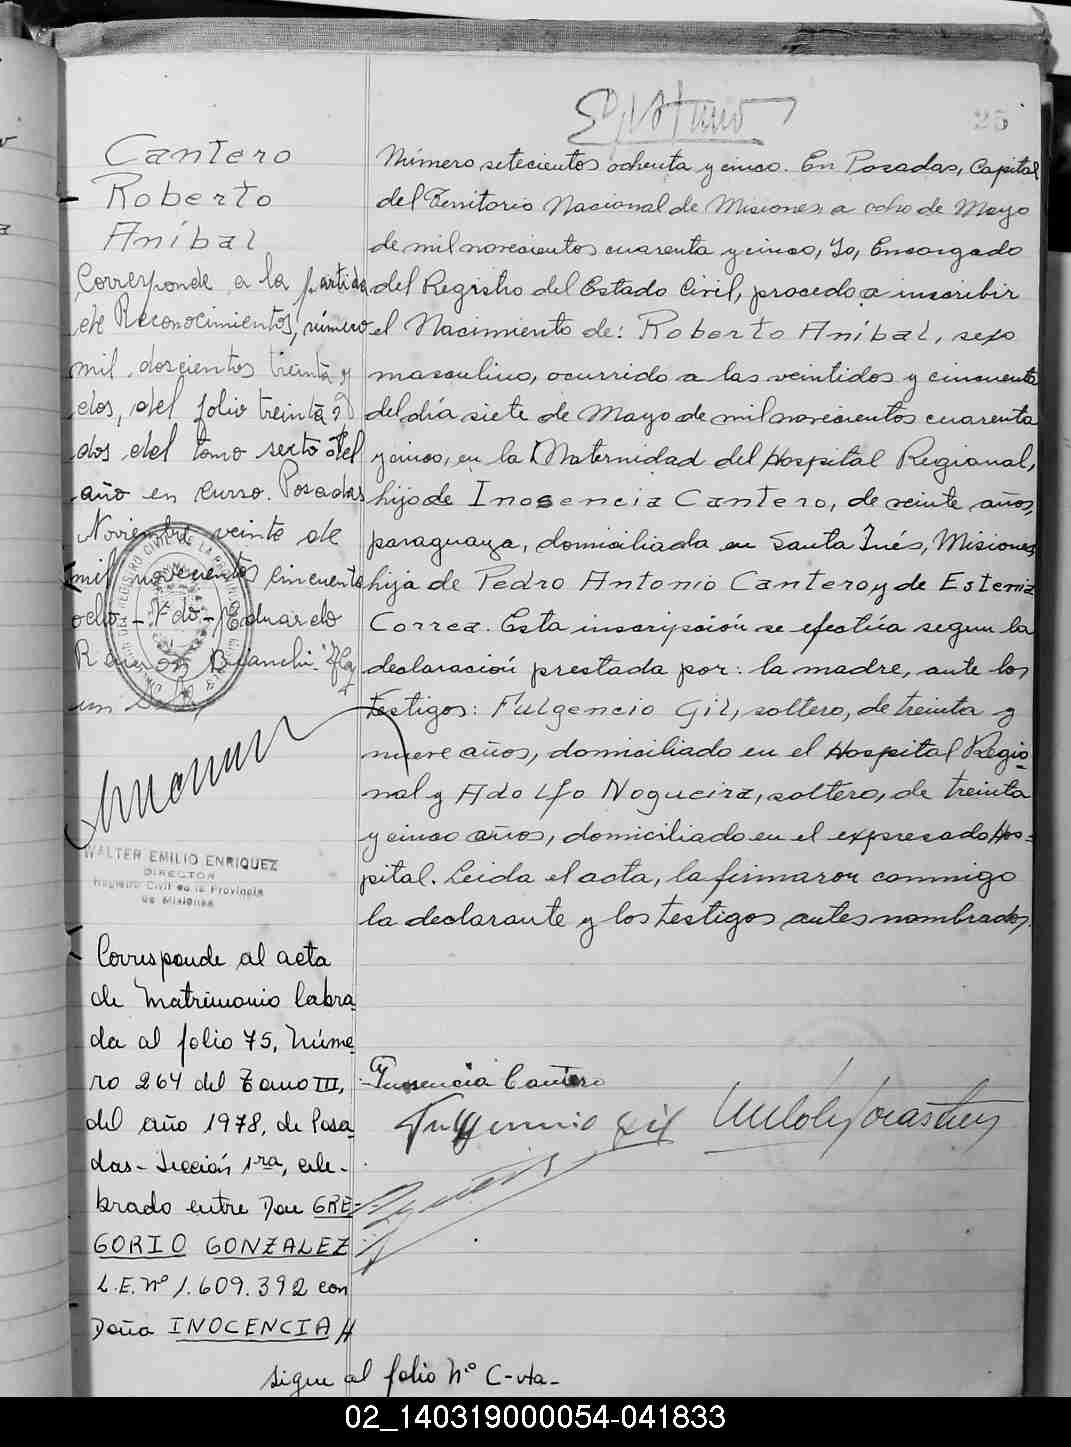 25
Cantero
Roberto
Aníbal
Corresponde a la partida
de Reconocimientos, número
mil doscientos treinta y
dos, del folio treinta y
dos del tomo sexto del
año en curso. Posadas
Noviembre veinte de
mil novecientos cincuenta
ocho - Fdo - Eduardo
Bianchi. Hay
un
WALTER EMILIO ENRIQUEZ
DIRECTOR
Registro Civil de la Provincia
de Misiones
Corresponde al acta
de Matrimonio labra-
da al folio 75, Núme-
ro 264 del Tomo III,
del año 1978, de Posa-
das - Sección 1ra, cele-
brado entre Don GRE-
GORIO GONZALEZ
L.E. Nº 1.609.392 con
Doña INOCENCIA //
sigue al folio Nº C-vta-
Número setecientos ochenta y cinco. En Posadas, Capital
del Territorio Nacional de Misiones, a ocho de Mayo
de mil novecientos cuarenta y cinco, Yo, Encargado
del Registro del Estado Civil, procedo a inscribir
el Nacimiento de: Roberto Aníbal, sexo
masculino, ocurrido a las veintidos y cincuenta
del día siete de Mayo de mil novecientos cuarenta
y cinco, en la Maternidad del Hospital Regional,
hijo de Inosencia Cantero, de veinte años,
paraguaya, domiciliada en Santa Inés, Misiones
hija de Pedro Antonio Cantero y de Estenia
Correa. Esta inscripción se efectúa segun la
declaración prestada por: la madre, ante los
testigos: Fulgencio Gil, soltero, de treinta y
nueve años, domiciliado en el Hospital Regio-
nal y Adolfo Nogueira, soltero, de treinta
y cinco años, domiciliado en el expresado Hos-
pital. Leida el acta, la firmaron conmigo
la declarante y los testigos antes nombrados.
Inosencia Cantero
Fulgencio Gil
02_140319000054-041833